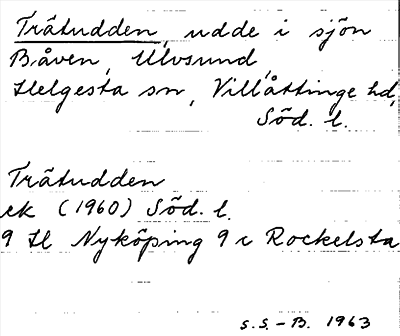 Trätudden, udde i sjön
Båven, Ulvsund,
Helgesta sn, Villåttinge hd,
Söd. l.
Trätudden
ek (1960) Söd. l.
9 H Nyköping 9 c Rockelsta
S.S.-B. 1963